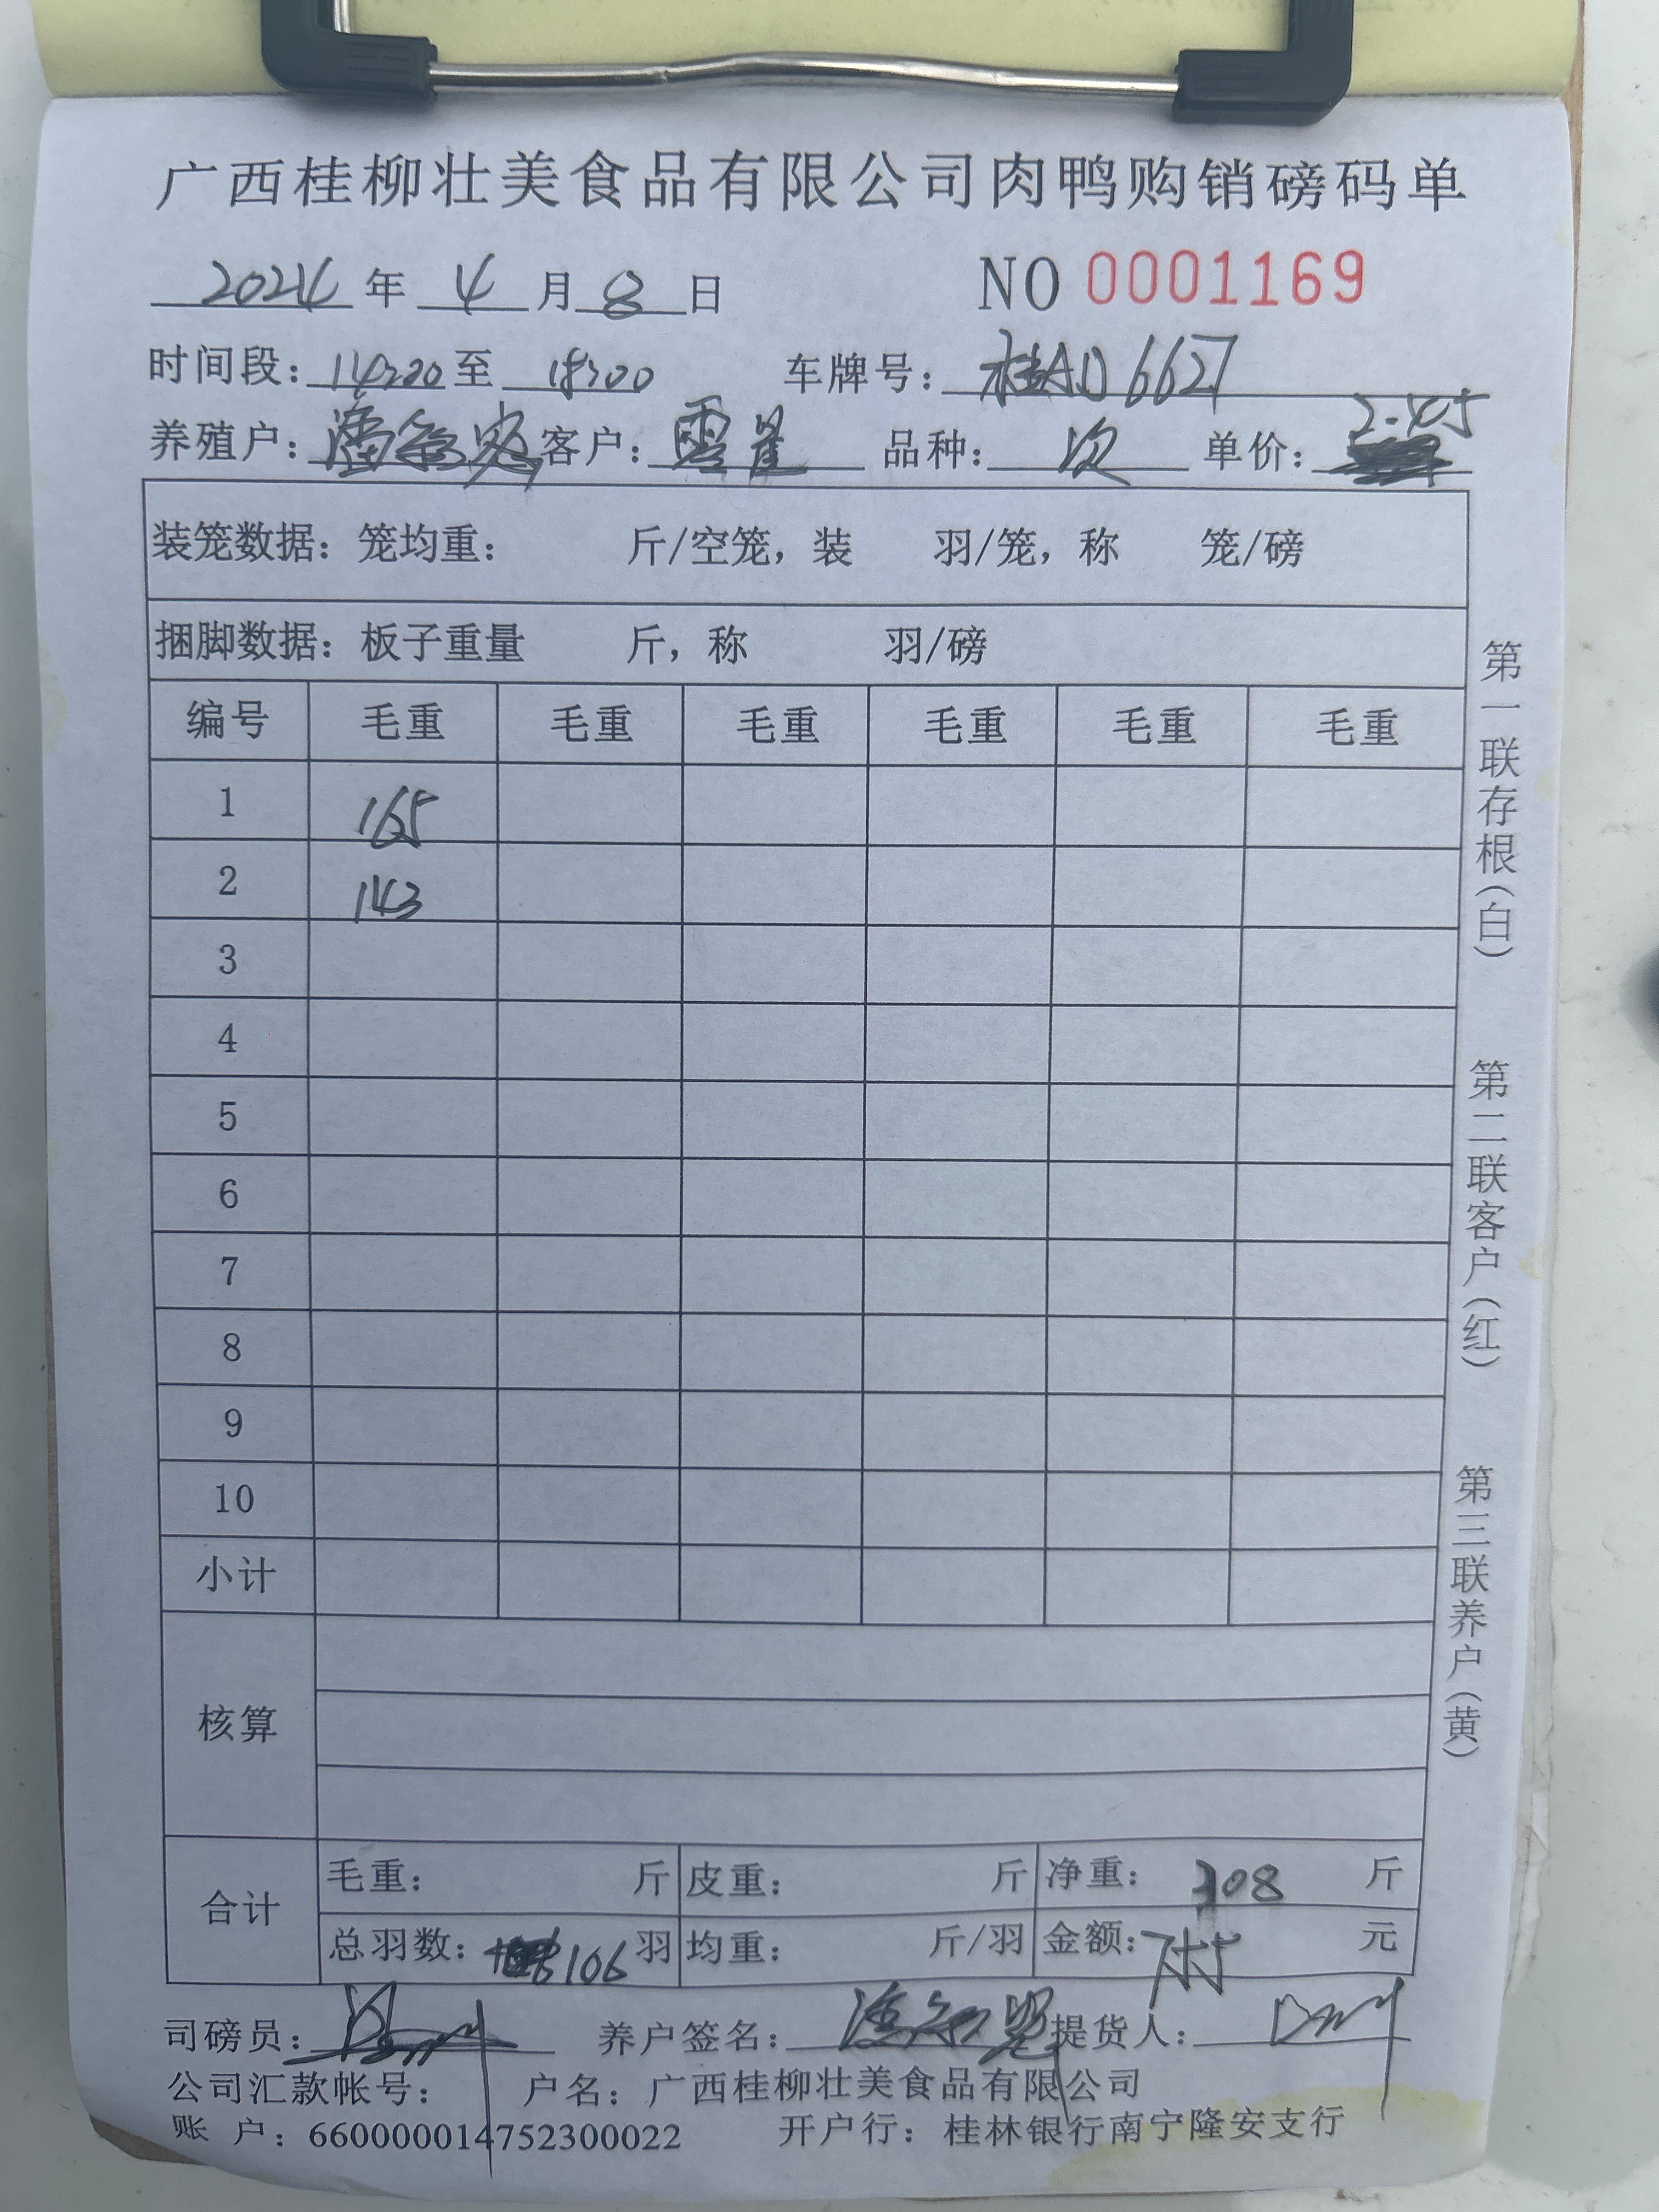 广西桂柳壮美食品有限公司肉鸭购销磅码单
2024 年 4 月 8 日 NO 0001169
时间段： 14:20 至 18:00 车牌号： 桂AD6627
养殖户： 客户： 品种： 次 单价： 2.45
装笼数据：笼均重： 斤/空笼，装 羽/笼，称 笼/磅
捆脚数据：板子重量 斤，称 羽/磅
编号 毛重 毛重 毛重 毛重 毛重 毛重
1 165
2 143
3
4
5
6
7
8
9
10
小计
核算
合计 毛重： 斤 皮重： 斤 净重： 308 斤
总羽数： 106 羽 均重： 斤/羽 金额： 元
司磅员： 养户签名： 提货人：
公司汇款帐号： 户名：广西桂柳壮美食品有限公司
账 户：660000014752300022 开户行：桂林银行南宁隆安支行
第一联存根（白）
第二联客户（红）
第三联养户（黄）